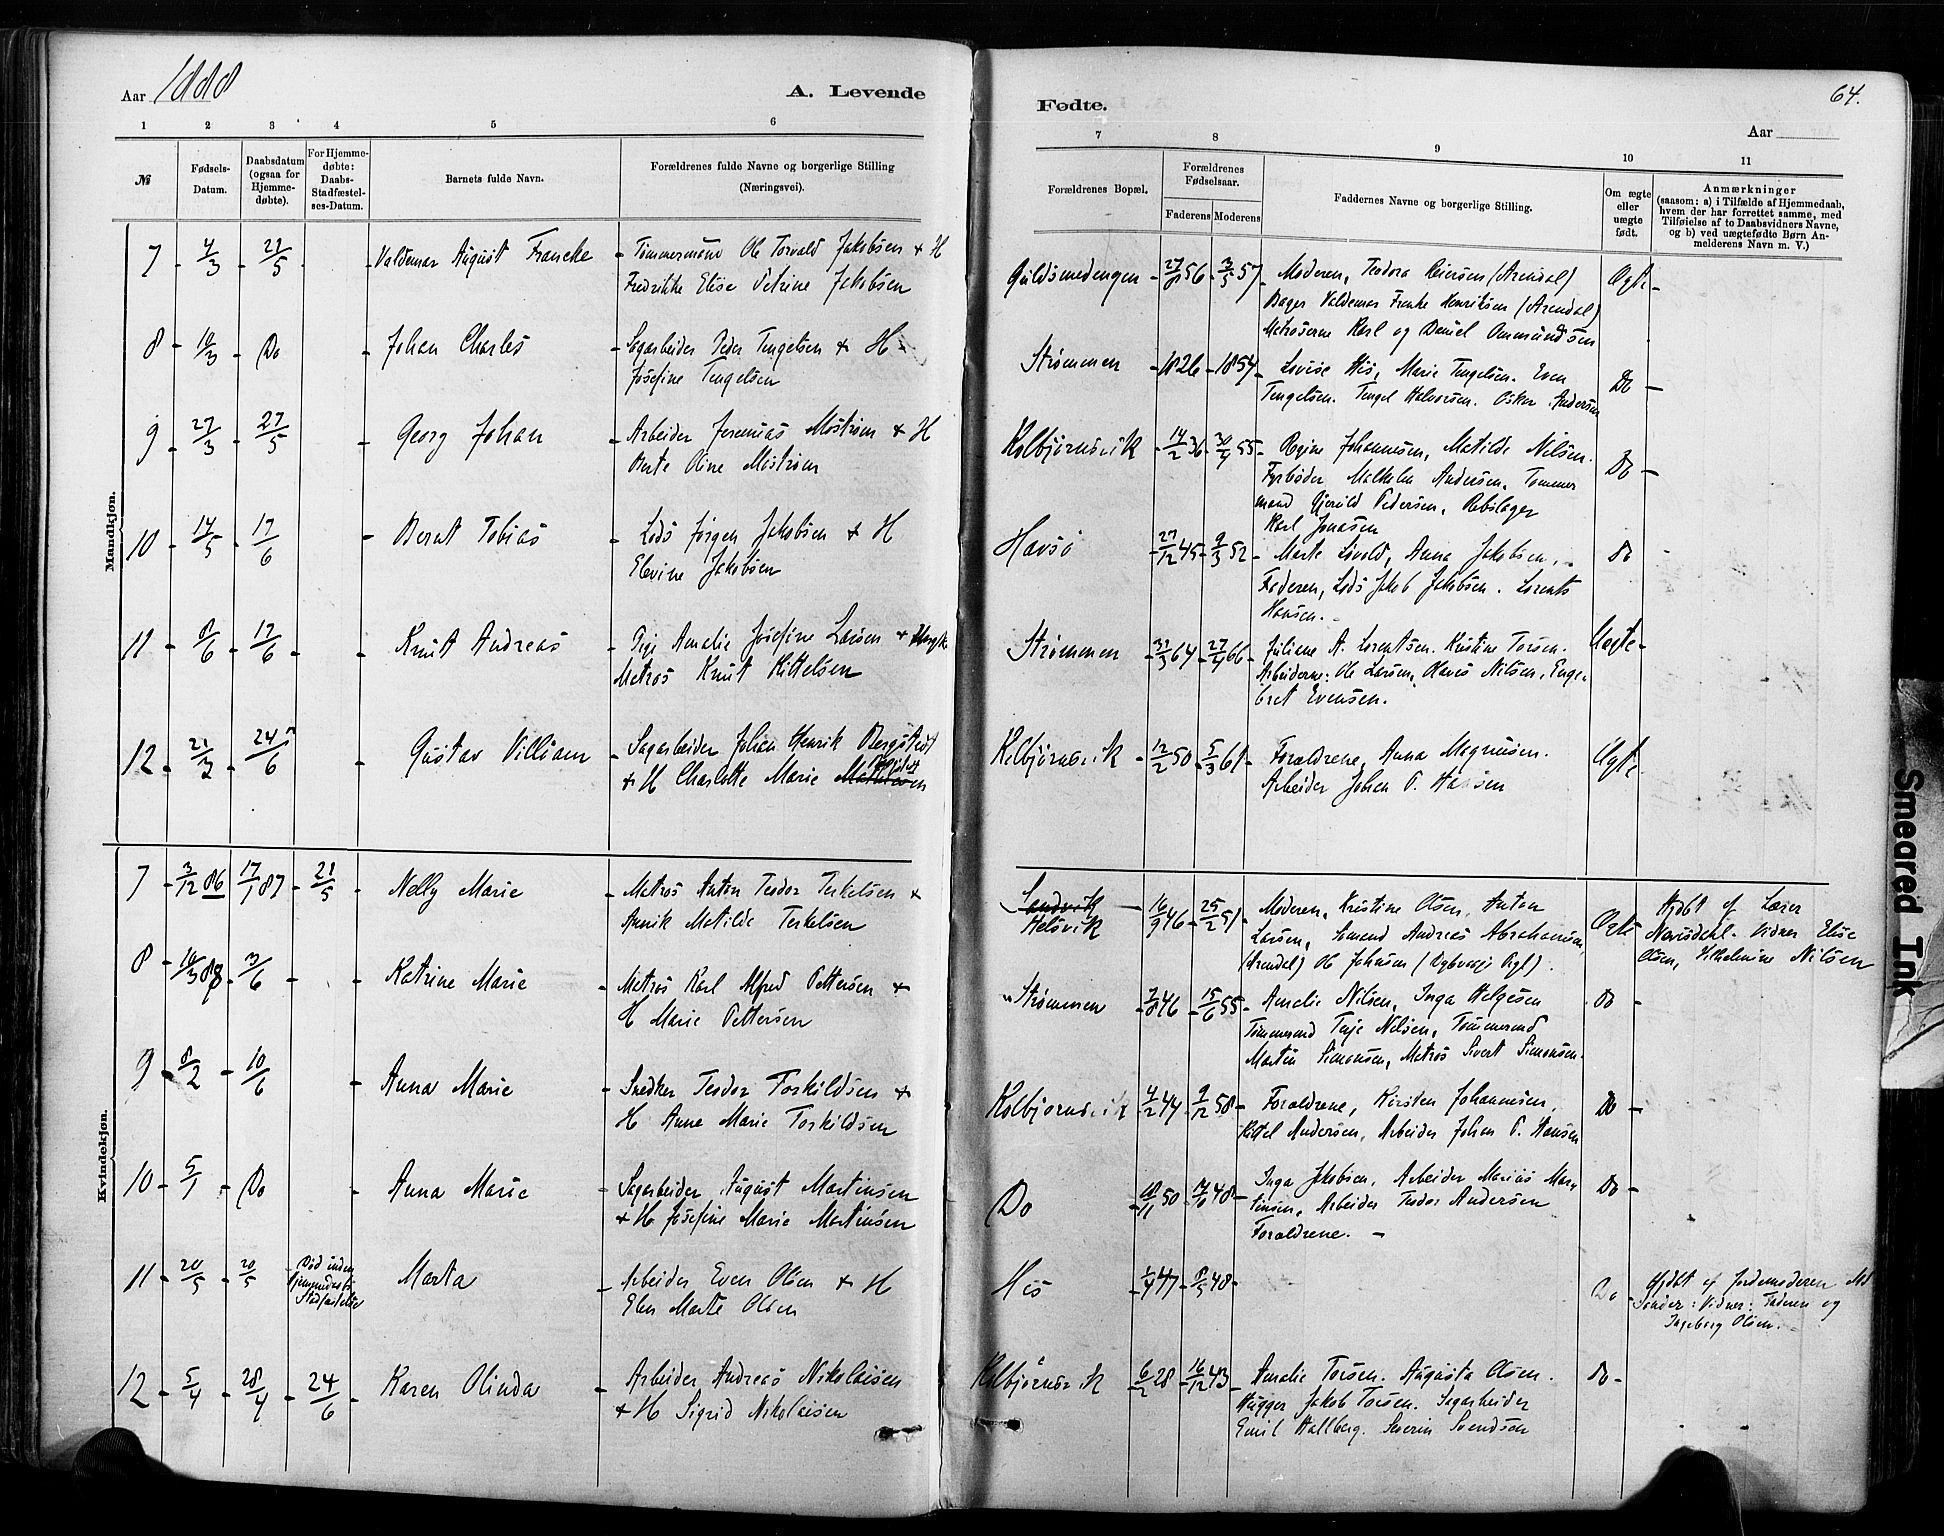 Aar 1888
A. Levende
1 2 3 4 5 6
№
Fødsels-Datum.
Daabsdatum (ogsaa for Hjemmedøbte).
For Hjemmedøbte: Daabs-Stadfæstelses-Datum.
Barnets fulde Navn.
Forældrenes fulde Navne og borgerlige Stilling
(Næringsvei).
Mandkjøn.
7 4/3 27/5 Valdemar August Francke Tømmermand Ole Torvald Jakobsen + H
Fredrikke Elise Petrine Jakobsen
8 10/3 Do Johan Charles Sagarbeider Peder Tengelsen + H
Josefine Tengelsen
9 27/3 27/5 Georg Johan Arbeider Jeremias Mostrøm + H
Berte Oline Mostrøm
10 14/5 17/6 Bernt Tobias Lods Jørgen Jakobsen + H
Elevine Jakobsen
11 8/6 17/6 Knut Andreas Pige Amalie Josefine Larsen + Ungk
Matros Knut Kittelsen
12 21/3 24/6 Gustav Villiam Sagarbeider Johan Henrik Bergstedt
+ H Charlotte Marie
Kvindekjøn.
7 3/12 86 17/1 87 21/5 Nelly Marie Matros Anton Teodor Terkelsen +
Annik Matilde Terkelsen
8 10/3 88 3/6 Katrine Marie Matros Karl Alfred Pettersen +
H Marie Pettersen
9 8/2 10/6 Anna Marie Snedker Teodor Torkildsen +
H Anne Marie Torkildsen
10 5/1 Do Anna Marie Sagarbeider August Martinsen
+ H Josefine Marie Martinsen
11 20/5 20/5 Død inden Hjemmedaabs Stadfæstelse Marta Arbeider Even Olsen + H
Elen Marte Olsen
12 5/4 28/4 24/6 Karen Olinda Arbeider Andreas Nikolaisen
+ H Sigrid Nikolaisen
64.
Fødte.
Aar
7 8 9 10 11
Forældrenes Bopæl.
Forældrenes Fødselsaar.
Faderens Moderens
Faddernes Navne og borgerlige Stilling.
Om ægte eller uægte født.
Anmærkninger
(saasom: a) i Tilfælde af Hjemmedaab, hvem der har forrettet samme, med Tilføielse af to Daabsvidners Navne, og b) ved uægtefødte Børn Anmelderens Navn m. V.)
Guldsmedengen 56 3/5 57 Moderen, Teodora Reiersen (Arendal) Ægte
Bager Valdemar Franke Henriksen (Arendal)
Matroserne Karl og Daniel Ommundsen
Strømmen 1826 1854 Lovise His, Marie Tengelsen. Even Do
Tengelsen. Tengel Halvorsen. Oskar Andersen
Kolbjørnsvik 14/2 36 30/4 55 Regine Johannesen, Matilde Nilsen. Do
Fyrbøder Malkolm Andersen, Tømmer
mand Gjeruld Pedersen, Rebslager
Karl Jonasen
Havsø 27/12 45 9/3 52 Marte Løvold, Anna Jakobsen, Do
Faderen, Lods Jakob Jakobsen. Lorents
Hansen.
Strømmen 31/3 64 27/4 66 Juliane A. Lorentsen. Kristine Torsen. Uægte
Arbeiderne: Ole Larsen, Olaves Nilsen, Enge-
bret Evensen.
Kolbjørnsvik 12/2 50 5/3 61 Forældrene, Anna Magnusen. Ægte
Arbeider Johan P. Hansen
Sandvik
Helsvik 16/9 46 25/2 51 Moderen, Kristine Olsen, Anton Ægte Hjdbt af Lærer
Larsen, Sømand Andreas Abrahamsen Navisdahl. Vidner Elise
(Arendal) Ole Johnsen (Dybvaag Prgl). Olsen, Vilhelmine Nilsen
Strømmen 7/8 46 15/6 55 Amalie Nilsen, Inga Helgesen Do
Tømmermd Terje Nilsen, Tømmermd
Martin Simonsen, Matros Sivert Simonsen.
Kolbjørnsvik 4/2 44 9/12 58 Forældrene, Kirsten Johannesen, Do
Kittel Andersen, Arbeider Johan P. Hansen
Do 50 48 Inga Jakobsen, Arbeider Marius Mar Do
tinsen, Arbeider Teodor Andersen
Forældrene.
His 47 48 Do Hjdbt af Jordemoderen Md
Sønder: Vidner: Faderen og
Ingeborg Olsen.
Kolbjørnsvik 6/2 28 16/12 43 Amalie Torsen. Augusta Olsen. Do
Hugger Jakob Torsen. Sagarbeider
Emil Hallberg. Severin Svendsen
Smeared Ink